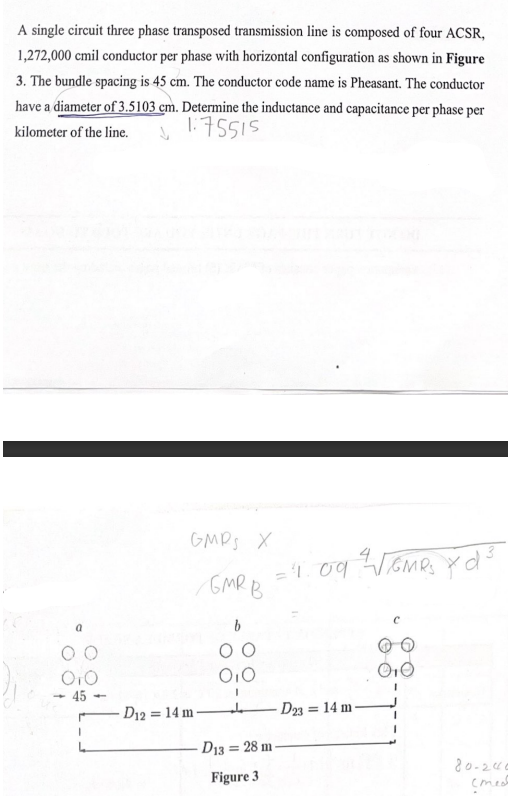 A single circuit three phase transposed transmission line is composed of four ACSR,
1,272,000 cmil conductor per phase with horizontal configuration as shown in Figure
3. The bundle spacing is 45 cm. The conductor code name is Pheasant. The conductor
have a diameter of 3.5103 cm. Determine the inductance and capacitance per phase per
kilometer of the line.
1.75515
GMDs X
GMR_B = 1.09 ∜GMRs × d³
=
a b c
45
D12 = 14 m D23 = 14 m
D13 = 28 m
Figure 3